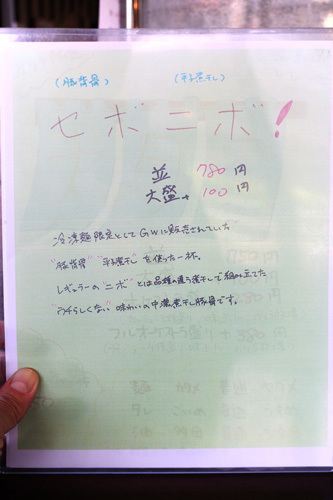 (豚背骨) (平子煮干し)
セボニボ!
並 780円
大盛+100円
冷凍麺限定としてGWに販売されていた
"豚背骨" "平子煮干し" を使った一杯。
レギュラーの"ニボ"とは品種の違う煮干しで組み立てた
うちらしくない味わいの中濃煮干し豚骨です。